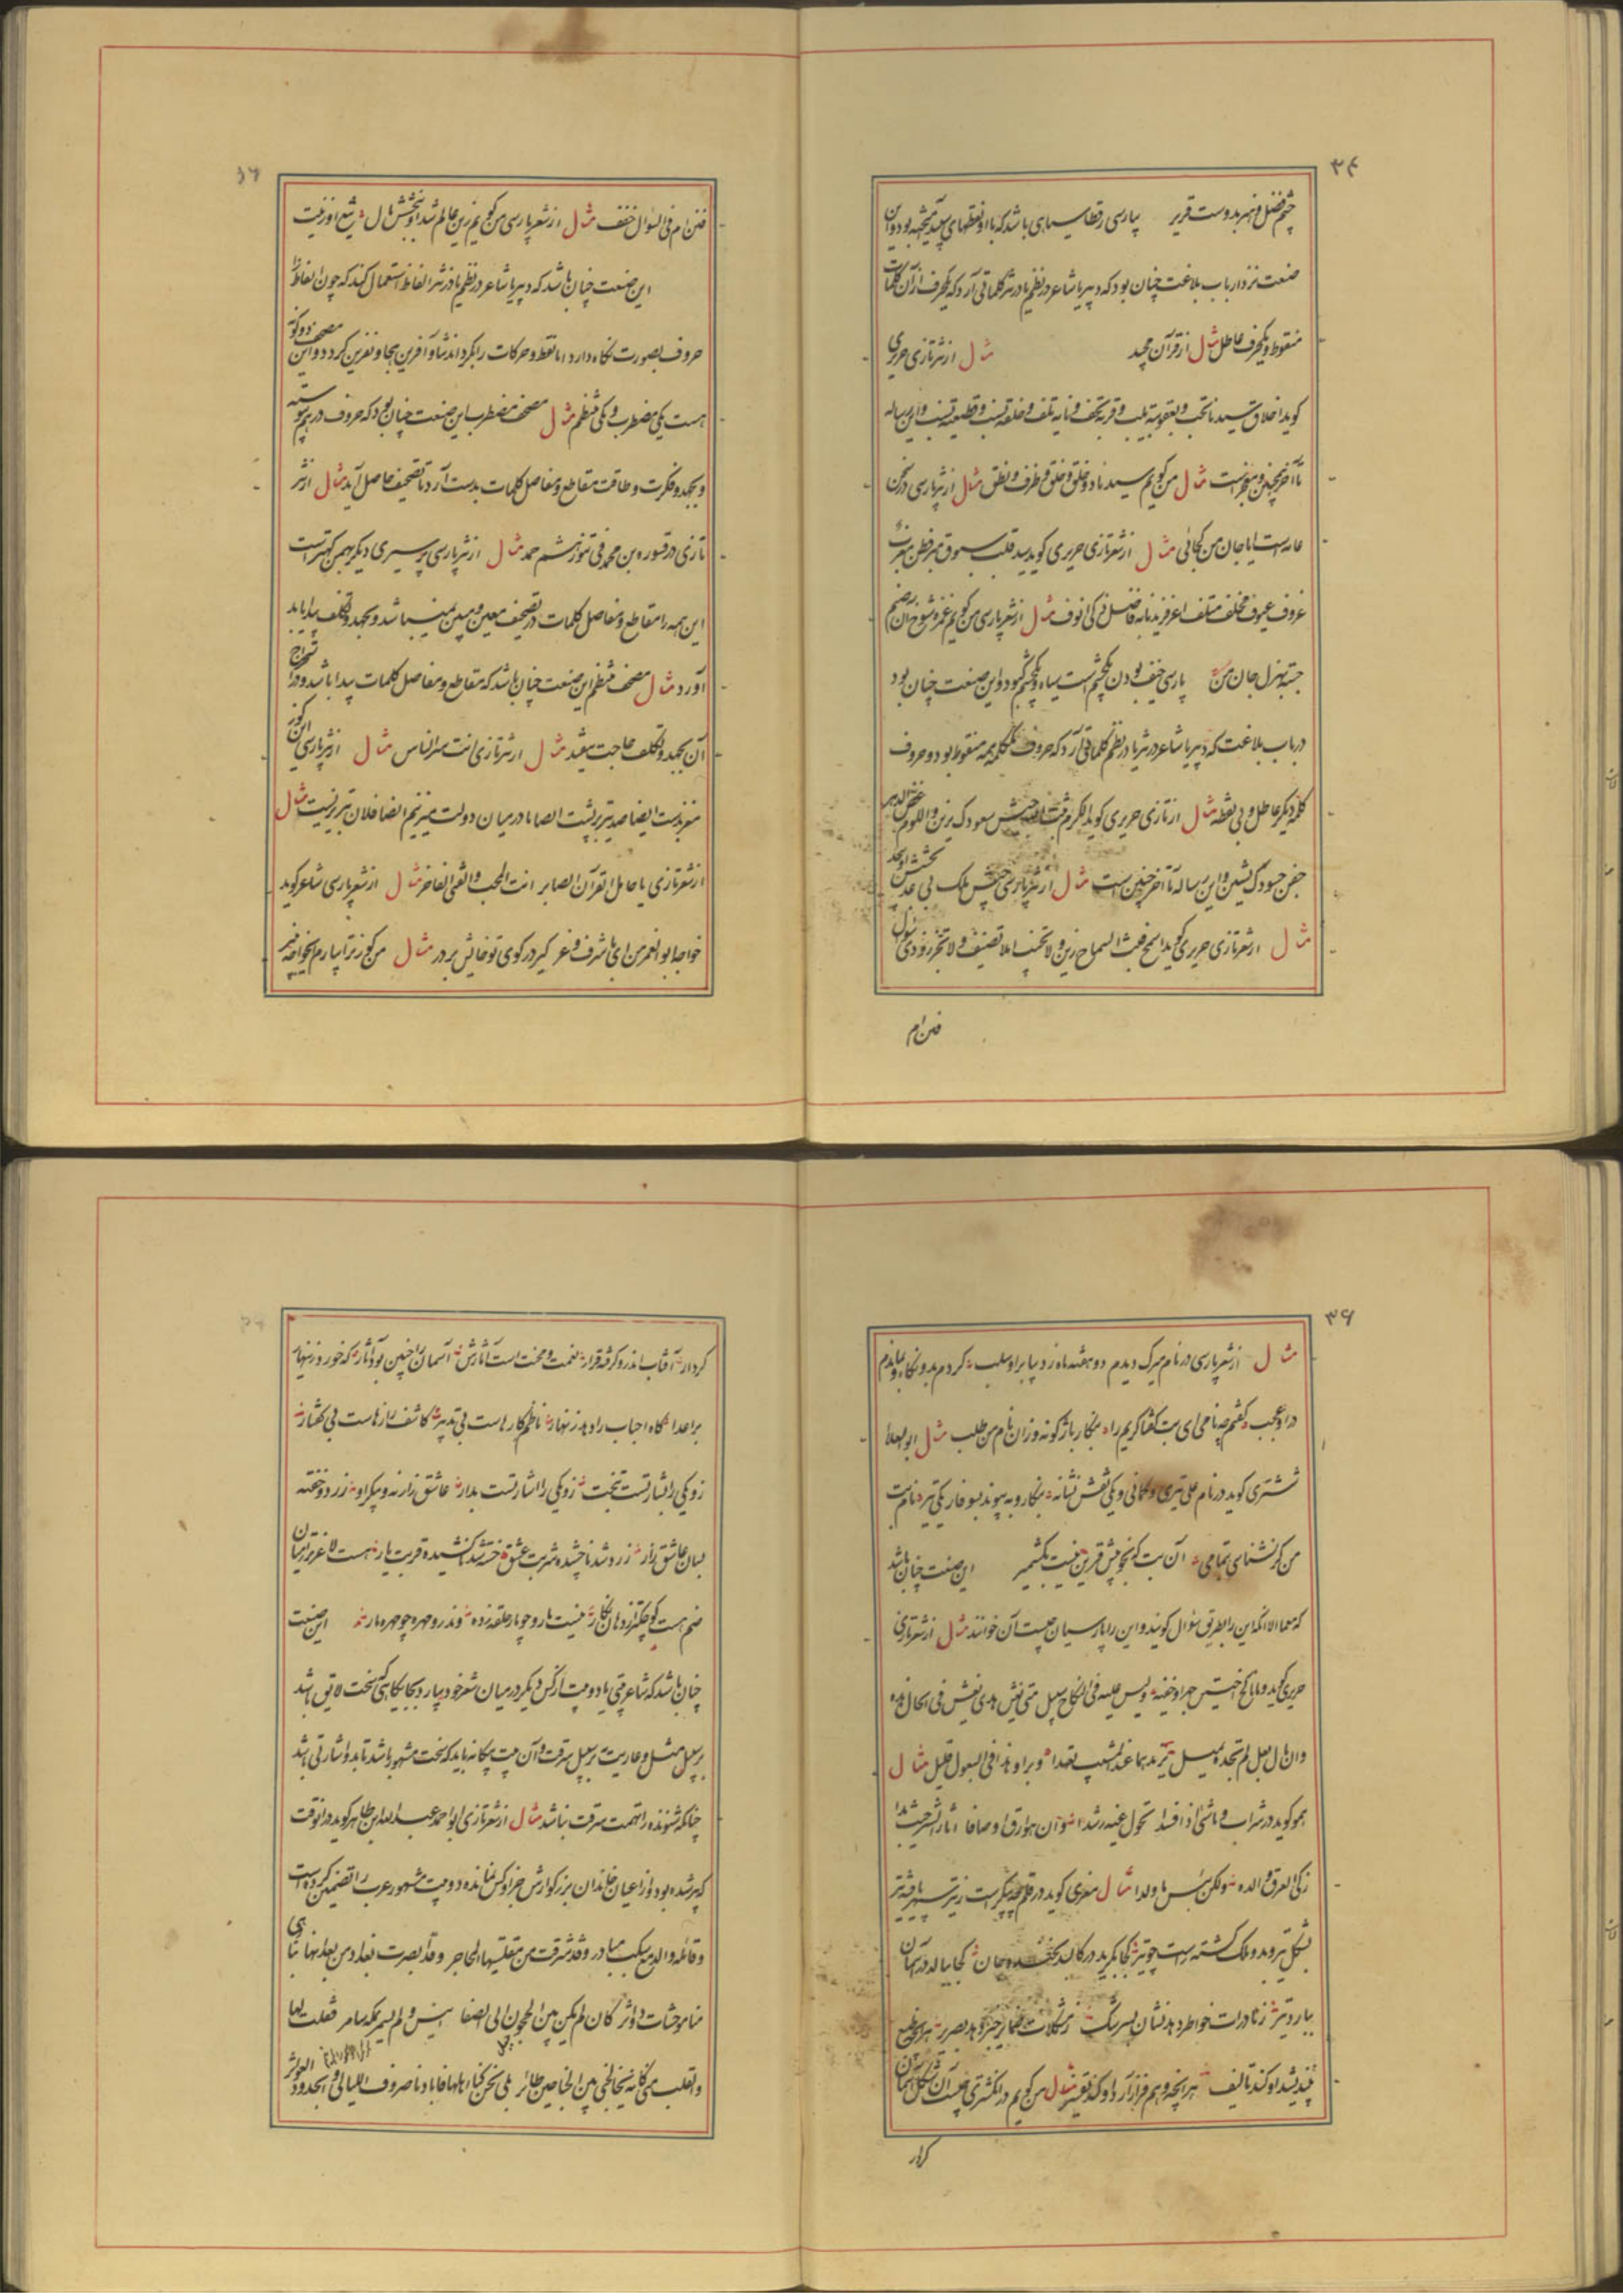 ۳۴
چشم فضل و هنر بدوست قریر پارسی رقطا سیاهی باشد که با او نقطهای سپید آمیخته بود و این
صنعت نزد ارباب بلاغت چنان بود که دبیر یا شاعر در نظم یا در نثر کلماتی آرد که یکحرف از آن کلمات
منقوط و یکحرف عاطل مثال از قرآن مجید مثال از نثر تازی حریری
کوید اخلاق سیدنا تحب و بعقوته یلب و قربه تحف و نایه تلف و خلته نسب و قطیعته نصب و این رساله
تا آخر همچنین و معجزست مثال من کویم سیدنا ذو خلق و خلق و ظرف و نطق مثال از نثر پارسی در سخن
عامه است ایا جان من کجائی مثال از شعر تازی حریری کوید سید قلب سبوق مبر فطن مغرب
عزوف عیوف مخلف متلف اغر فرید نابه فاضل ذکی انوف مثال از شعر پارسی من کویم غمزه شوخ آن صنم
خسته بهزل جان من پارسی خیف بودن یکچشم است سیاه و یکچشم کبود و این صنعت چنان بود
در باب بلاغت که دبیر یا شاعر در نثر یا در نظم کلماتی آرد که حروف یکلمه همه منقوط بود و حروف
کلمه دیکر عاطل و بی نقطه مثال از تازی حریری کوید الکرم ثبت الله جیش سعودک یزین و اللوم غض الدهر
جفن حسودک یشین و این رساله تا آخر چنین است مثال از نثر پارسی جیش ملک بی عدد بخشش او بیحد
مثال از شعر تازی حریری کوید اسمح فبث السماح زین و لا تخب املا تضیف و لا تجز رد ذی سئول
فنن ام

فنن ام فی السؤال خفف مثال از شعر پارسی من کویم زین عالم شد او ببخش مال تیغ او زینت
این صنعت چنان باشد که دبیر یا شاعر در نظم یا در نثر الفاظ استعمال کند که چون الفاظ را
حروف بصورت نکاه دارد اما نقط و حرکات را بکرداند ثنا و آفرین هجا و نفرین کردد و این مصحف دو کونه
هست یکی مضطرب و یکی منتظم مثال مصحف مضطرب این صنعت چنان بود که حروف در هم پیوسته
و بجهد و فکرت و طاقت مقاطع و مفاصل کلمات بدست آرد تا تصحیف حاصل آید مثال از نثر
تازی در قسوره بن محمد فی تنور هشم حمد مثال از نثر پارسی پر سیری دیکر بهمن کهترست
این همه را مقاطع و مفاصل کلمات در تصحیف معین و مبین نمیباشد و بجهد و تکلف پیدا باید
آورد مثال مصحف منتظم این صنعت چنان باشد که مقاطع و مفاصل کلمات پیدا باشد و در استخراج
آن بجهد و تکلف حاجت نیفتد مثال از نثر تازی انت سر الناس مثال از نثر پارسی این کور
مغزیست ایضا صد تیر بر پشت ایضا ما در میان دولت میزنیم ایضا فلان تبریزیست مثال
از شعر تازی یا حامل القرآن الصابر انت المحب و الفتی الفاخر مثال از شعر پارسی شاعر کوید
خواجه ابوالعمر من ای باشرف و عز کیر در کوی تو خالیش بر در مثال من کوز ترا بپارم ایخواجه خیز

۳۶
مثال از شعر پارسی در نام میرک دیدم دو هفته ماه زد بیا بر او سلب کردم بدو نکاه و بماندم
در او عجب کفتم چه نامی ای بت کفتا کریم راه بنکار باژکونه وزان نام من طلب مثال ابوالعلا
ششتری کوید در نام علی تیری و کمانی و یکی نقش نشانه بنکار و بپیوند بسوفار یکی تیر نام بت
من کر نشناسی تمامی آن بت که بخوبیش قرین نیست بکشمیر این صنعت چنان باشد
که معما الا آنکه این را بطریق سؤال کویند و این را پارسیان چیست آن خوانند مثال از شعر تازی
حریری کوید و ما ناکح اختین جهرا و خفیة و لیس علیه فی النکاح سبیل متی یغش هذی یغش فی الحال هذه
و ان مال بعل لم تجده یمیل یزیدهما عند المشیب تعهدا و برا و هذا فی البعول قلیل مثال
هموکوید در شراب و ما شئ اذا فسدا تحول غیه رشدا و ان هو راق اوصافا اثار الشر حیث بدا
زکی العرق والده ولکن بئس ما ولدا مثال معزی کوید در قلم چه پیکرست ز تیر سپهر یافته تیر
بشکل تیر و بدو ملک کشته راست چو تیر کجا بکرید در کالبد بخندد جان کجا ببالد در آسمان
ببارد تیر ز نادرات خواطر دهد نشان بسرشک ز مشکلات ضمایر خبر دهد بصریر هر آنچه طبع
بیندیشد او کند تالیف هر آنچه وهم فراز آرد او کند تفسیر مثال من کویم در انکشتری چیست آن شکل آسمان
کردار

کردار آفتاب اندرو کرفته قرار نعمت و محنت است آثارش آسمان را چنین بود آثار که خورد زینهار
بر اعدا کاه احباب را دهد زنهار ناظم کارهاست بی تدبیر کاشف رازهاست بی کفتار
زو یکی را بشارتست بتخت زو یکی را اشارتست بدار عاشق زار نه و پیکر او زرد و خفته
بسان عاشق زار زرد شد ناچشیده شربت عشق خسته شد ناکشیده فرقت یار هست لاغر تر از میان
صنم هست کوچکتر از دهان نکار نیست مار و چو مار حلقه زده وندرو مهره چو مهره مار این صنعت
چنان باشد که شاعر بیتی یا دو بیت از کس دیکر در میان شعر خود بیارد بجایکاهی که سخت لایق باشد
بر سبیل تمثل و عاریت نه بر سبیل سرقت و آن بیت بیکانه باید که سخت مشهور باشد تا بدو اشارتی باشد
چنانکه شنونده را تهمت سرقت نباشد مثال از شعر تازی ابو احمد عبدالله ابن طاهر کوید در آنوقت
که پیر شده بود و از اعیان خاندان بزرکوارش جز او کس نمانده دو بیت مشهور عرب را تضمین کرده است
و قائلة والدمع سکب مبادر و قد شرقت من مقلتیها المحاجر و قد ابصرت بغداد من بعد انسها
منا موحشات دواثر کان لم یکن بین الحجون الی الصفا انیس و لم یسمر بمکة سامر فقلت لها
والقلب منی کانما یخالجنی بین الجناحین طائر بلی نحن کنا اهلها فابادنا صروف اللیالی و الجدود العواثر